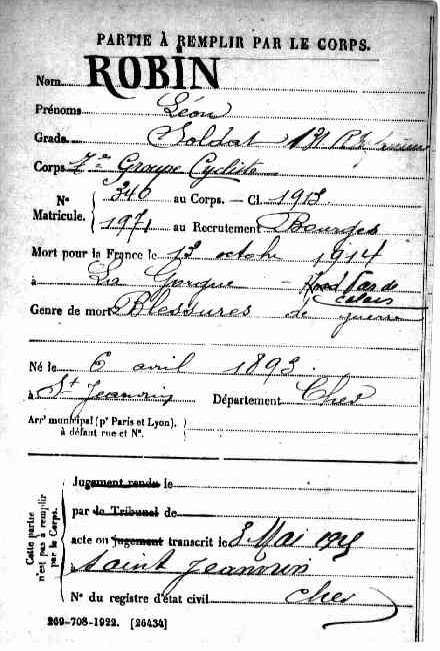 PARTIE À REMPLIR PAR LE CORPS.
Nom ROBIN
Prénoms Léon
Grade Soldat 131
Corps 7e Groupe Cycliste
N° Matricule. { 346 au Corps. — Cl. 1913.
1971 au Recrutement Bourges
Mort pour la France le 13 octobre 1914
à La Gorgue - Nord Pas de Calais
Genre de mort Blessures de guerre
Né le 6 avril 1893.
à St Jeanvrin Département Cher
Arrt municipal (pr Paris et Lyon).
à défaut rue et N°.
Cette partie n'est pas à remplir par le Corps.
Jugement rendu le
par le Tribunal de
acte ou jugement transcrit le 8 Mai 1915
Saint Jeanvrin
N° du registre d'état civil Cher
269-708-1922. [26434]